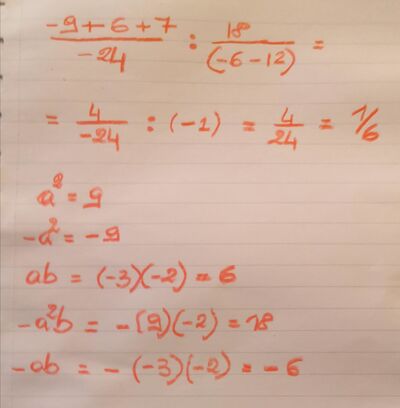 (-9+6+7)/(-24) : 18/(-6-12) =
= 4/(-24) : (-1) = 4/24 = 1/6
a² = 9
-a² = -9
ab = (-3)(-2) = 6
-a²b = -(9)(-2) = 18
-ab = -(-3)(-2) = -6